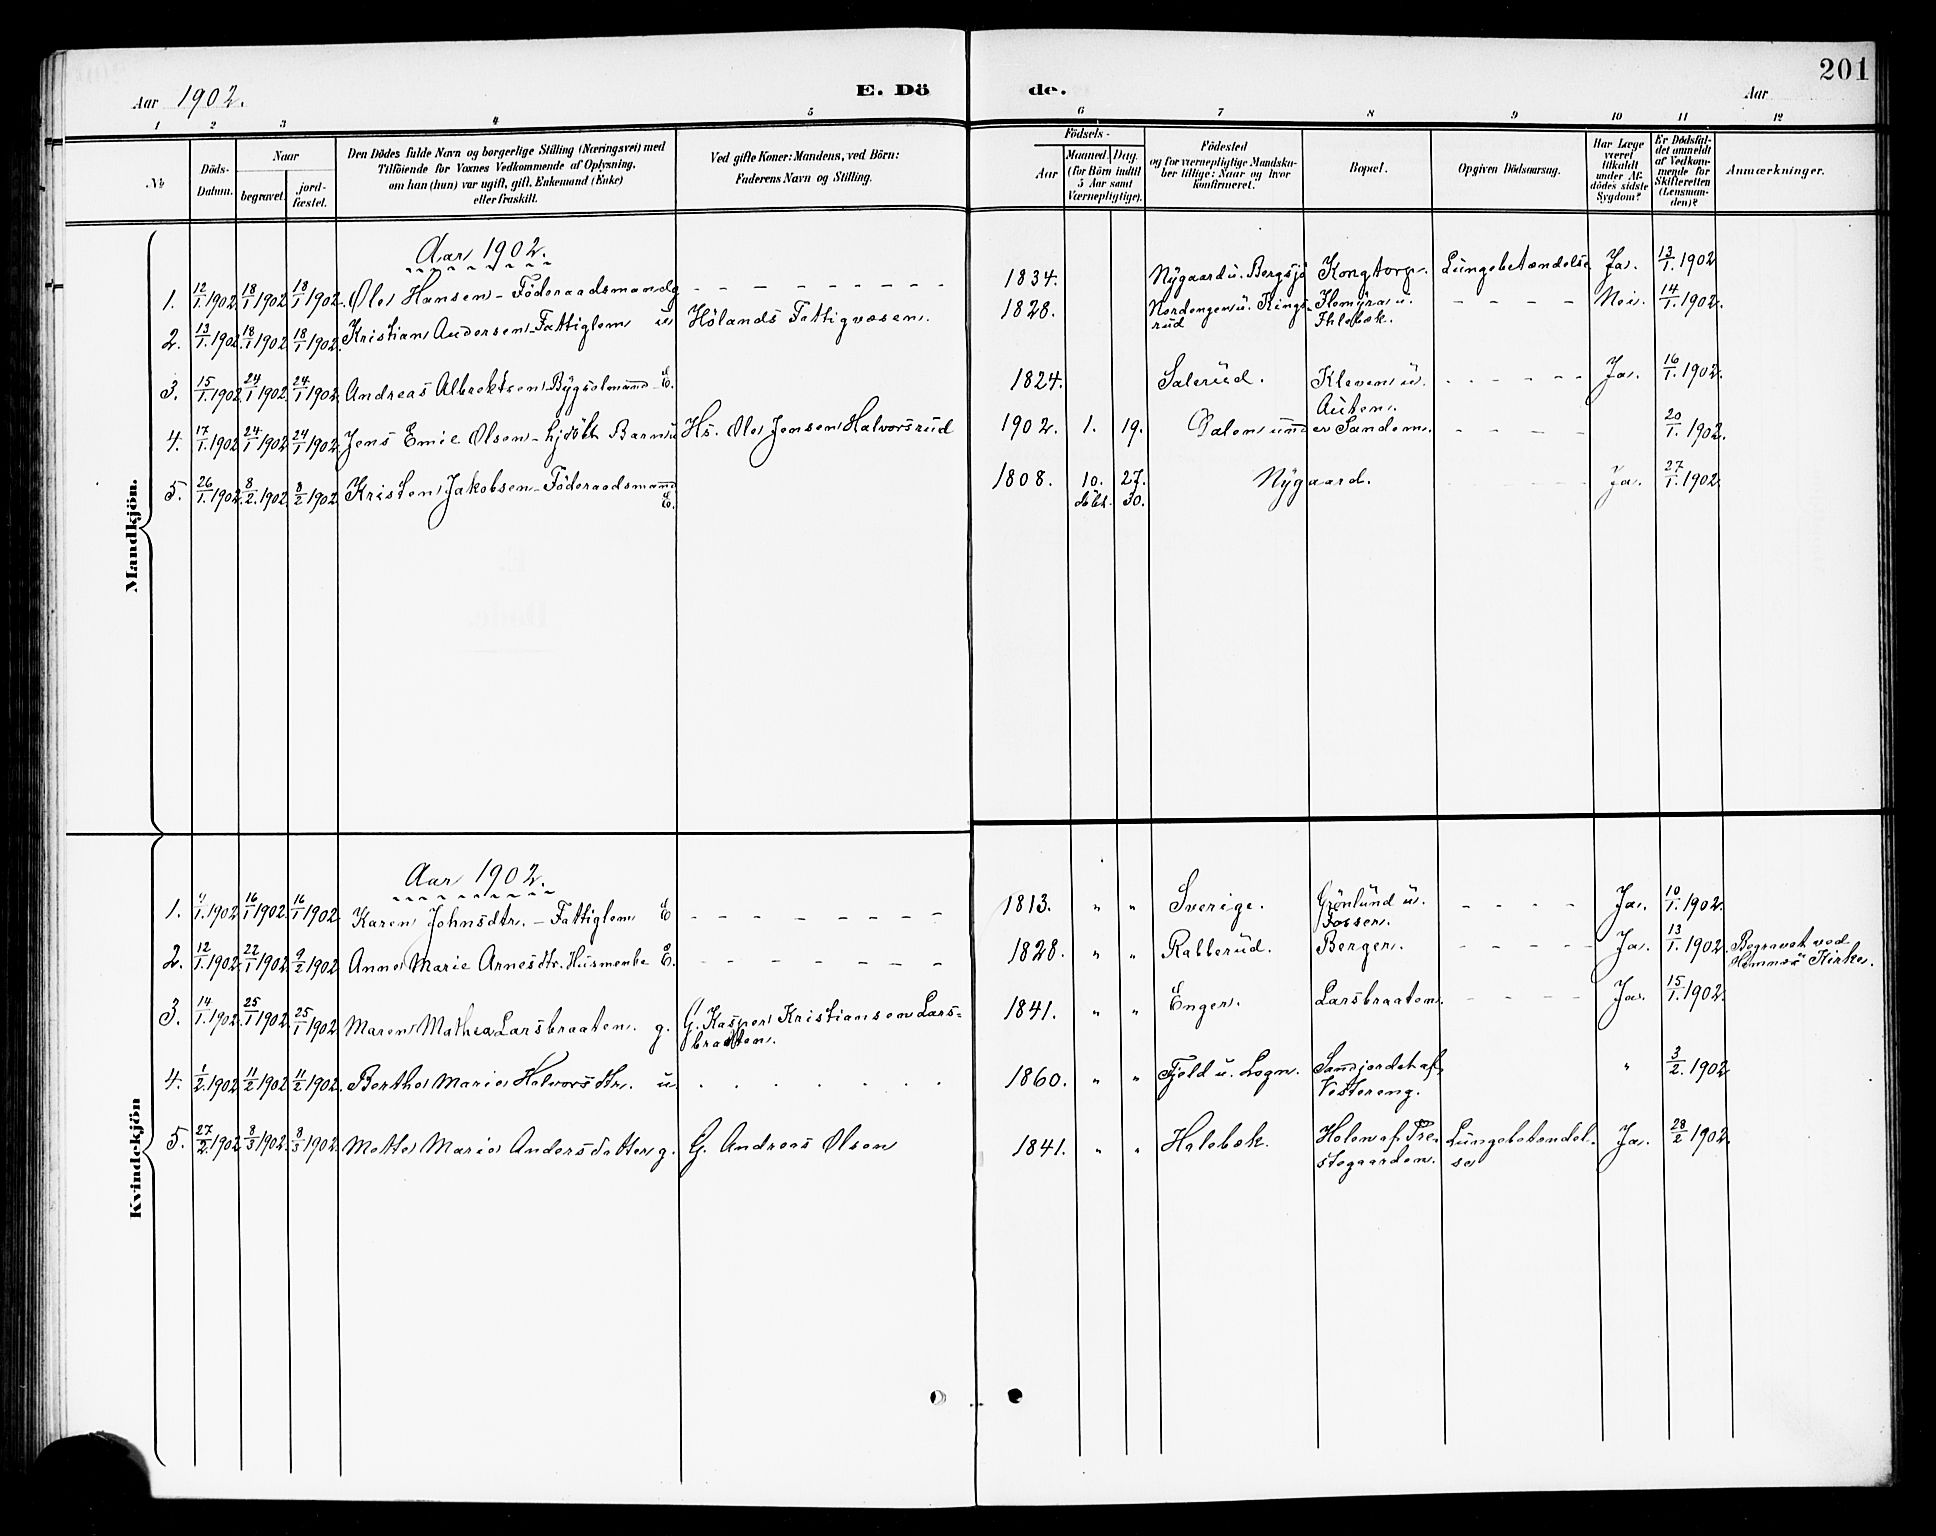 201
Aar 1902. E. Dö de. Aar
1 2 3 4 5 6 7 8 9 10 11 12
No
Döds-Datum.
Naar
begravet.
jord-fæstet.
Den Dödes fulde Navn og borgerlige Stilling (Næringsvei) med
Tilföiende for Voxnes Vedkommende af Oplysning,
om han (hun) var ugift, gift, Enkemand (Enke)
eller fraskilt.
Ved gifte Koner: Mandens, ved Börn:
Faderens Navn og Stilling.
Födsels-
Aar
Maaned. Dag.
(for Börn indtil
5 Aar samt
Værnepligtige).
Födested
og for værnepligtige Mandska-
ber tillige: Naar og hvor
konfirmeret.
Bopæl.
Opgiven Dödsaarsag.
Har Læge
været
tilkaldt
under Af-
dödes sidste
Sygdom?
Er Dödsfal-
det anmeldt
af Vedkom-
mende for
Skifteretten
(Lensman-
den)?
Anmærkninger.
Mandkjön.
Aar 1902.
1. 12/1 1902 18/1 1902 18/1 1902. Ole Hansen - Föderaadsmand g - - - - - - - - 1834. Nygaard u. Bergsjö Kongtorp. Lungebetændelse Ja. 13/1. 1902
2. 13/1. 1902 18/1 1902 18/1 1902. Kristian Andersen - Fattiglem u Hölands Fattigvæsen. 1828. Nordengen u. Krings-
rud Flomyra u.
Ihlebæk. - - - - Nei. 14/1. 1902.
3. 15/1. 1902 24/1 1902. 24/1 1902. Andreas Albrektsen - Bygselmand - E. 1824. Salerud. Kleven u.
Auten. - - - - - Ja. 16/1. 1902.
4. 17/1. 1902 24/1 1902 24/1 1902. Jens Emil Olsen - hjdöbt Barn u Hs. Ole Jensen Halvorsrud 1902. 1. 19. Dalen under Sandem. - - - - 20/1. 1902.
5. 26/1. 1902 8/2. 1902. 8/2 1902 Kristen Jakobsen - Föderaadsmand
E. 1808. 10. 27.
döbt. 30. Nygaard. - - - - - Ja. 27/1. 1902.
Kvindekjön
Aar 1902.
1. 1902 16/1 1902 16/1 1902. Karen Johnsdtr. - Fattiglem E - - - - - - - 1813. " " Sverige. Grönlund u.
Fossen. - - - - Ja. 10/1. 1902.
2. 12/1. 1902 22/1 1902. 9/2 1902 Anne Marie Arnesdtr. Husmenke E. - - - - - - - 1828. " " Rabberud. Berger. - - - - - Ja. 13/1. 1902. Begravet ved
Hemnæs Kirke.
3. 14/1. 1902. 25/1 1902. 25/1 1902 Maren Mathea Larsbraaten. g. G. Kasper Kristiansen Lars-
braaten. 1841. " " Enger. Larsbraaten. - - - - Ja. 15/1. 1902.
4. 1/2. 1902 11/2 1902 11/2 1902. Berthe Marie Halvorsdtr. u. . . . . . . . 1860. " " Fjeld u. Logn. Sandjordet af
Vestereng. " 3/2. 1902
5. 27/2. 1902 8/3 1902. 8/3 1902. Mette Marie Andersdatter g. G. Andreas Olsen 1841. " " Halebæk. Holen af Pre-
stegaarden. Lungebetændel-
se Ja. 28/2 1902.